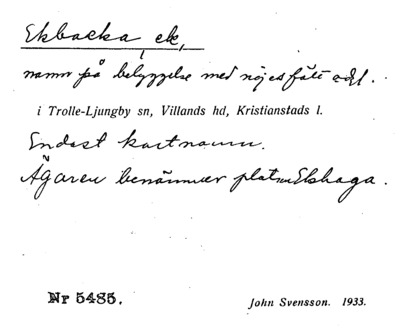 Ekbacka ek,
namn på belyggelse med nöjesfält o dl.
i Trolle-Ljungby sn, Villands hd, Kristianstads l.
Endast kartnamn.
Ägaren benämner platsen Ekhaga.
Nr 5485.
John Svensson. 1933.